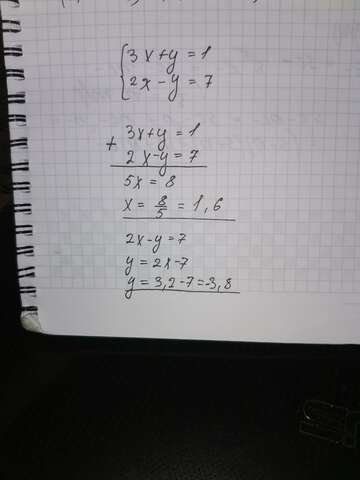 3x+y=1
2x-y=7
+ 3x+y=1
2x-y=7
5x=8
x=8/5=1,6
2x-y=7
y=2x-7
y=3,2-7=-3,8